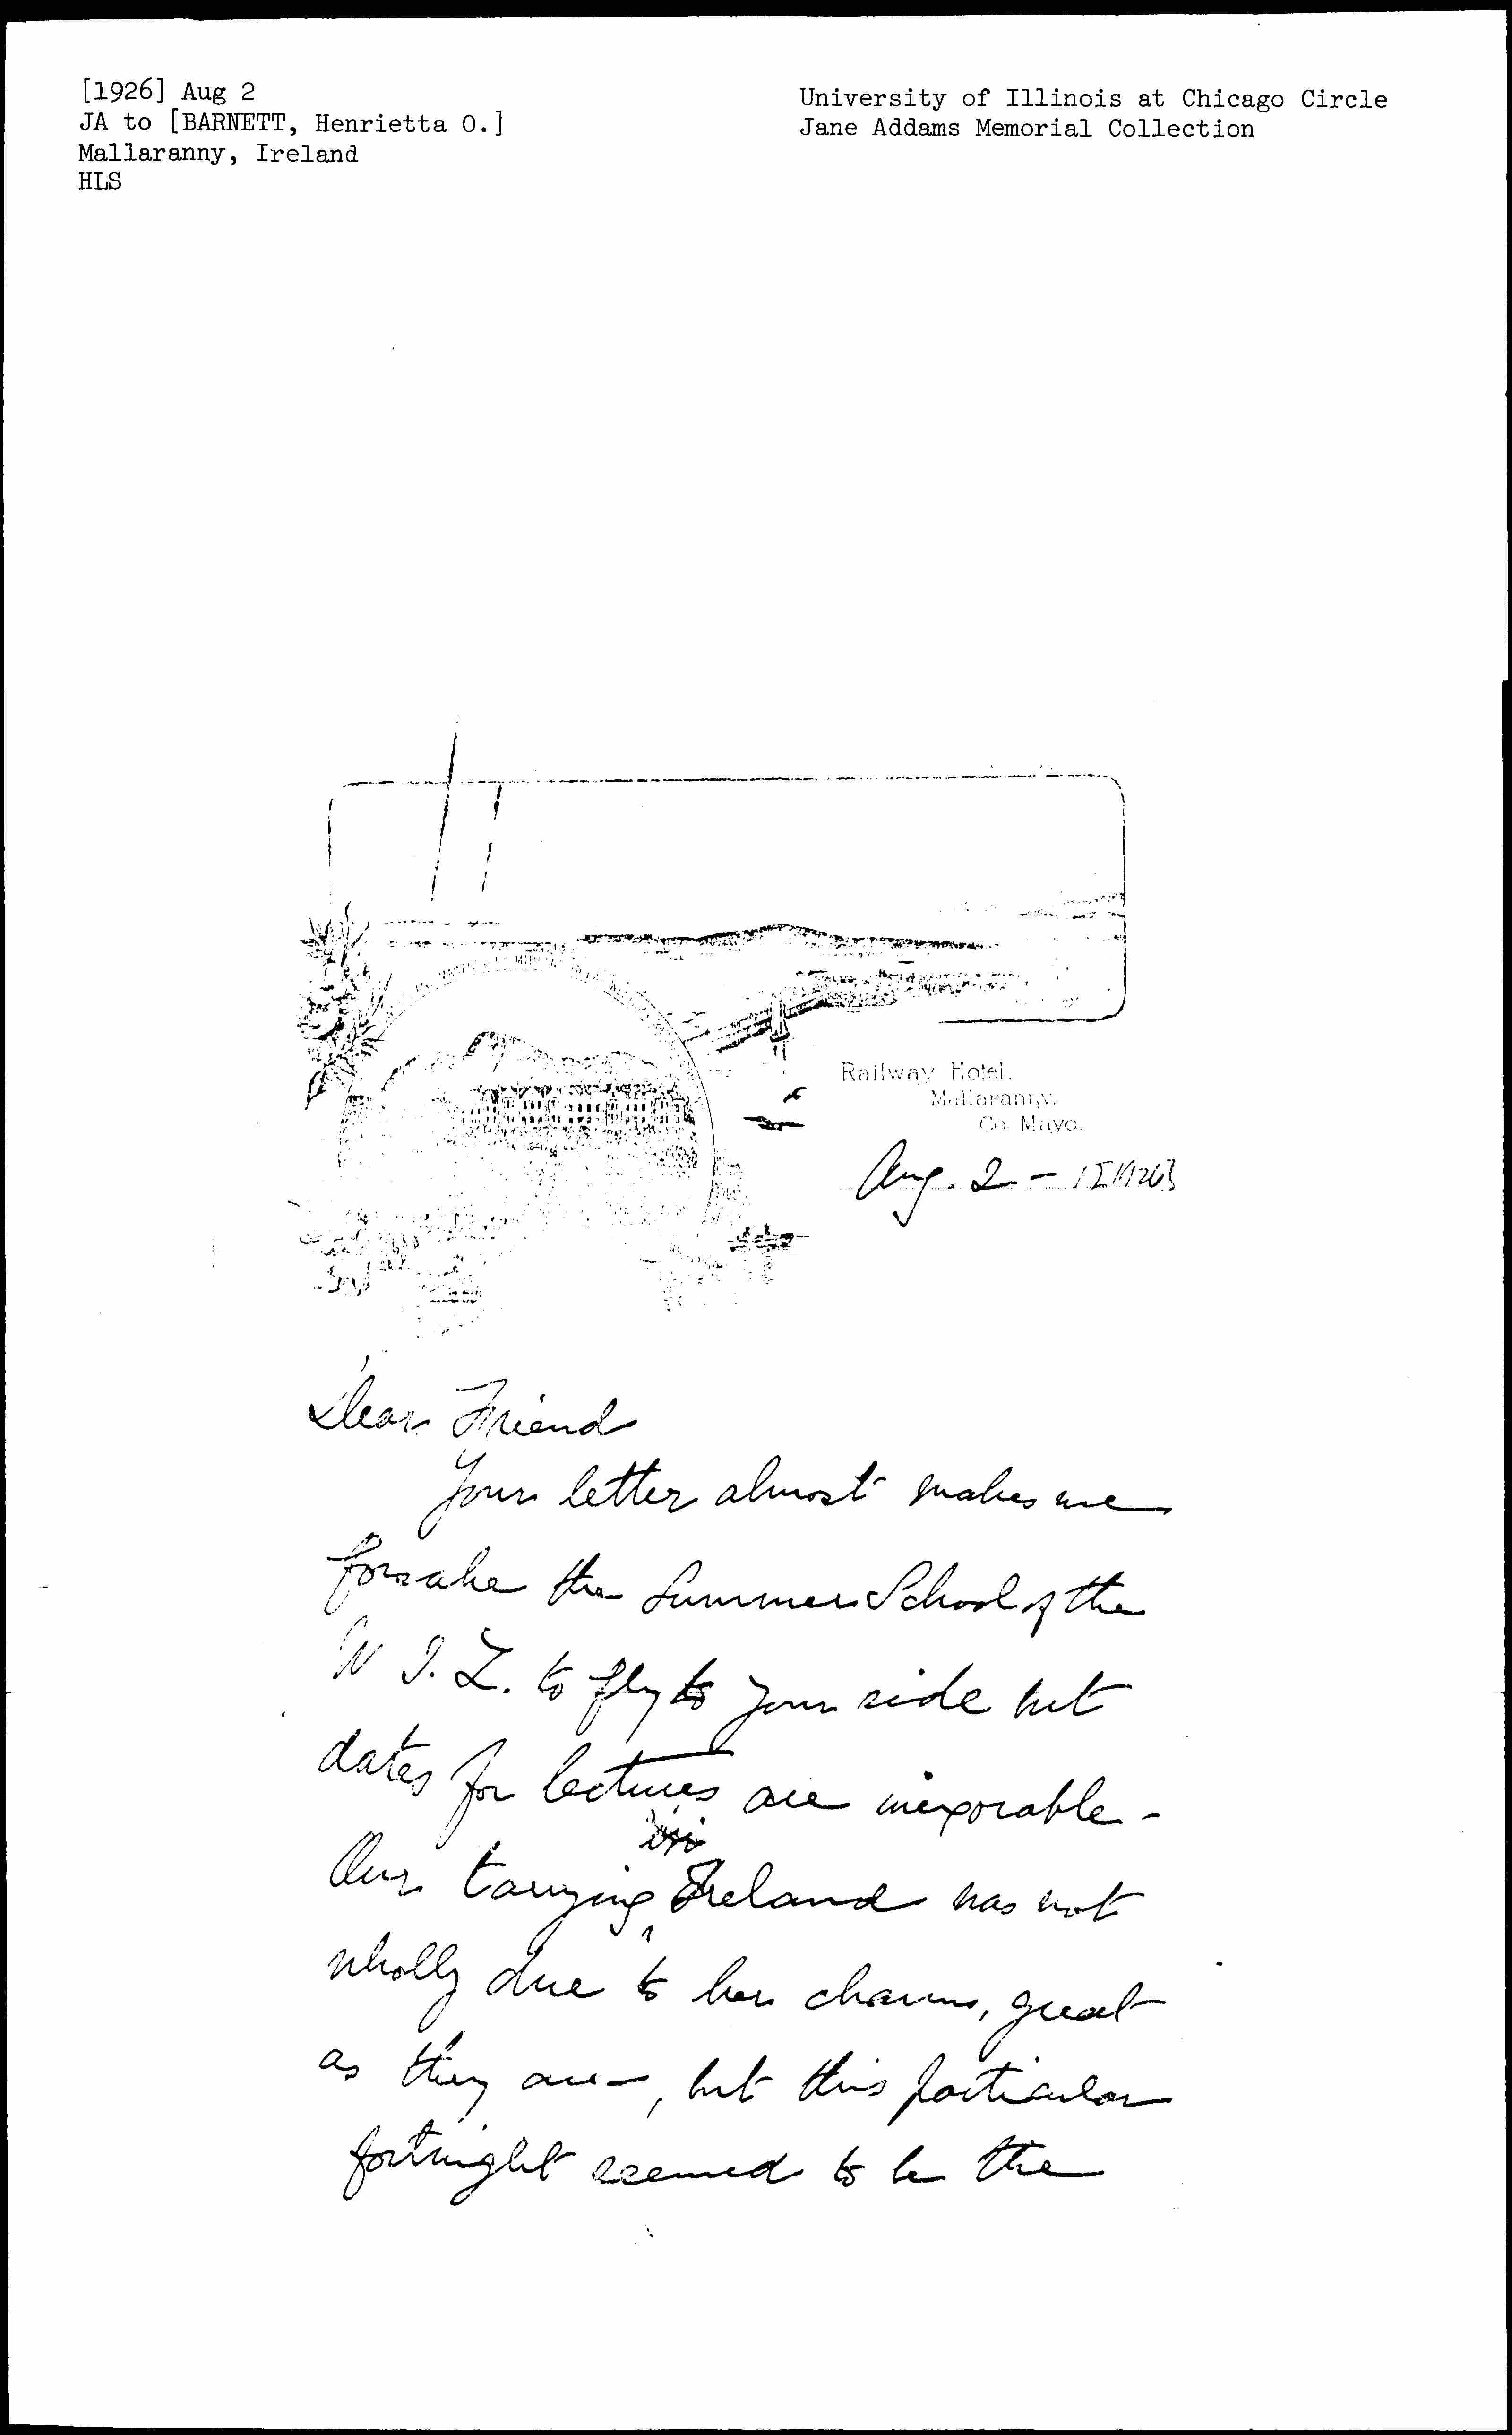 [1926] Aug 2
JA to [BARNETT, Henrietta O.]
Mallaranny, Ireland
HLS
University of Illinois at Chicago Circle
Jane Addams Memorial Collection
Railway Hotel,
Mallaranny.
Co. Mayo.
Aug. 2 - [1926]
Dear Friend
Your letter almost makes me
forsake the Summer School of the
W I. L. to fly to your side but
dates for lectures are inexorable -
in
Our tarrying Ireland was not
wholly due to her charms, great
as they are -, but this particular
fortnight seemed to be the